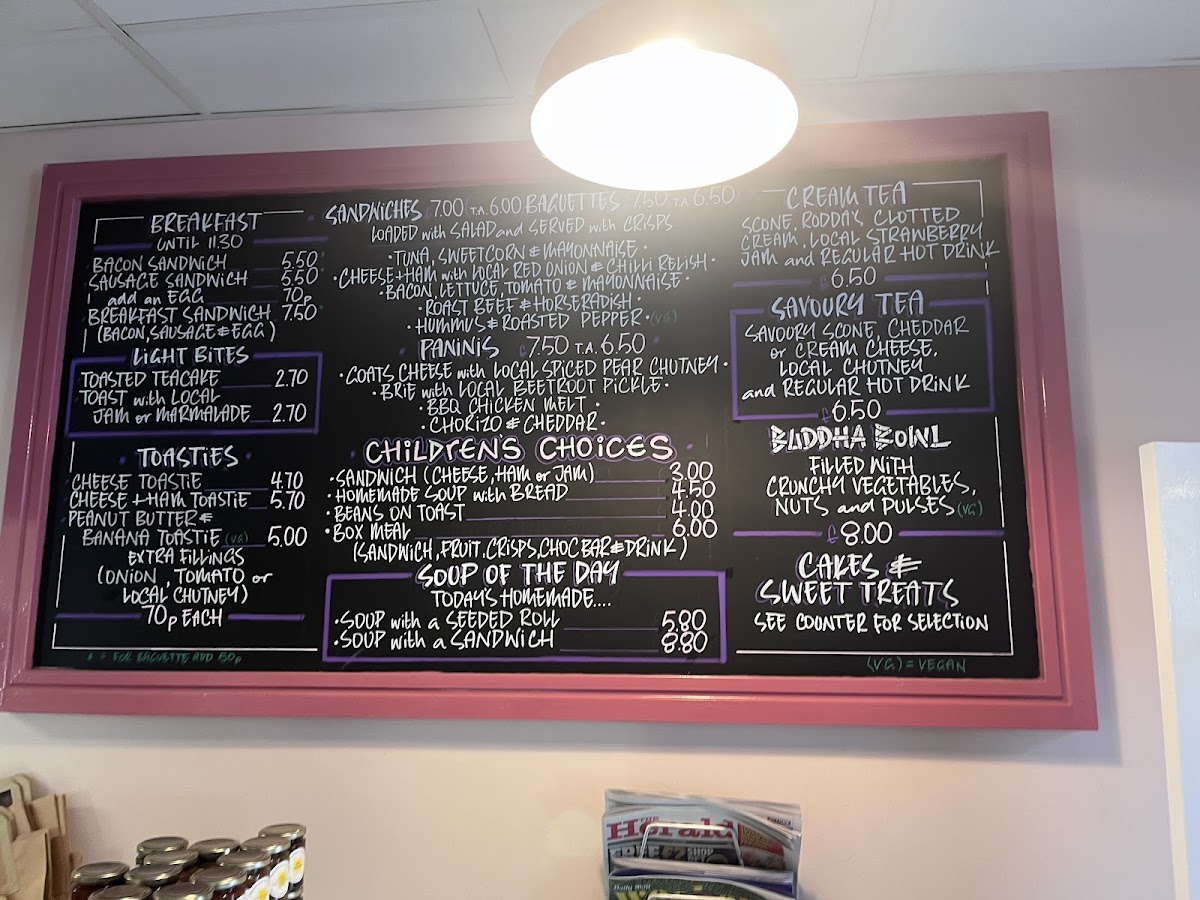 BREAKFAST
UNTIL 11:30
BACON SANDWICH 5.50
SAUSAGE SANDWICH 5.50
add an EGG 70p
BREAKFAST SANDWICH 7.50
(BACON, SAUSAGE & EGG)
LIGHT BITES
TOASTED TEACAKE 2.70
TOAST with LOCAL
JAM or MARMALADE 2.70
TOASTIES
CHEESE TOASTIE 4.70
CHEESE + HAM TOASTIE 5.70
PEANUT BUTTER &
BANANA TOASTIE (VG) 5.00
EXTRA FILLINGS
(ONION, TOMATO or
LOCAL CHUTNEY)
70p EACH
* = FOR BAGUETTE ADD 50p
SANDWICHES £7.00 T.A. 6.00 BAGUETTES 7.50 T.A. 6.50
LOADED with SALAD and SERVED with CRISPS
• TUNA, SWEETCORN & MAYONNAISE •
• CHEESE + HAM with LOCAL RED ONION & CHILLI RELISH •
• BACON, LETTUCE, TOMATO & MAYONNAISE •
• ROAST BEEF & HORSERADISH •
• HUMMUS & ROASTED PEPPER • (VG)
• PANINIS £7.50 T.A. 6.50 •
• GOATS CHEESE with LOCAL SPICED PEAR CHUTNEY •
• BRIE with LOCAL BEETROOT PICKLE •
• BBQ CHICKEN MELT •
• CHORIZO & CHEDDAR •
• CHILDREN'S CHOICES •
• SANDWICH (CHEESE, HAM or JAM) 3.00
• HOMEMADE SOUP with BREAD 4.50
• BEANS ON TOAST 4.00
• BOX MEAL 6.00
(SANDWICH, FRUIT, CRISPS, CHOC BAR & DRINK)
SOUP OF THE DAY
TODAY'S HOMEMADE....
• SOUP with a SEEDED ROLL 5.80
• SOUP with a SANDWICH 8.80
CREAM TEA
SCONE, RODDA'S CLOTTED
CREAM, LOCAL STRAWBERRY
JAM and REGULAR HOT DRINK
£6.50
SAVOURY TEA
SAVOURY SCONE, CHEDDAR
or CREAM CHEESE,
LOCAL CHUTNEY
and REGULAR HOT DRINK
£6.50
BUDDHA BOWL
FILLED WITH
CRUNCHY VEGETABLES,
NUTS and PULSES (VG)
£8.00
CAKES &
SWEET TREATS
SEE COUNTER FOR SELECTION
(VG) = VEGAN
THE
Herald
FREE
SHOP
Daily Mail